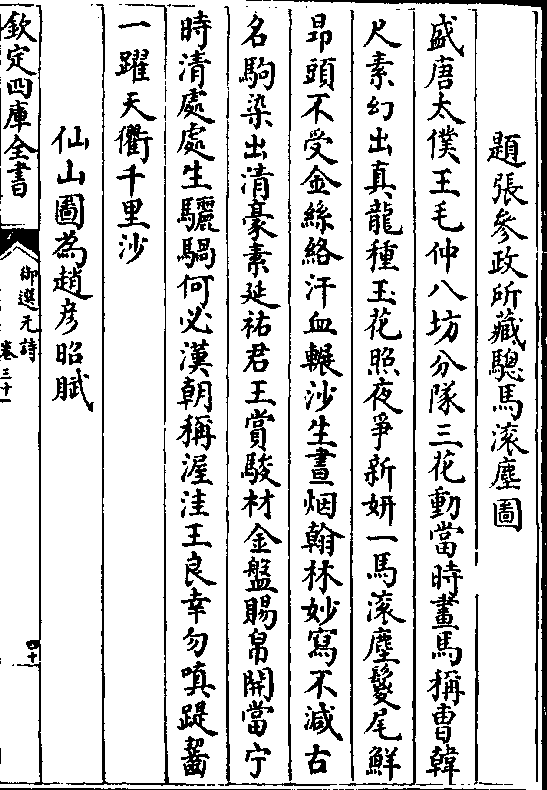 題張參政所藏驄馬滚塵圖
盛唐太僕王毛仲八坊分隊三花動當時畫馬稱曹韓
尺素幻出真龍種玉花照夜爭新妍一馬滚塵鬉尾鮮
昻頭不受金絲絡汗血輾沙生晝烟翰林妙寫不減古
名駒染出清豪素延祐君王賞駿材金盤賜帛開當宁
時清處處生驪騧何必漢朝稱渥洼王良幸勿嗔踶齧
一躍天衢千里沙
仙山圖為趙彦昭賦
欽定四庫全書
御選元詩
卷三十一
四十